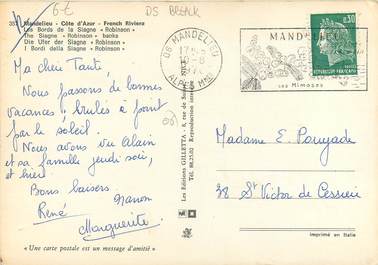 6€
DS BREAK
Mandelieu - Côte d'Azur - French Riviera
Les Bords de la Siagne « Robinson »
The Siagne « Robinson » banks
Die Ufer der Siagne « Robinson »
I Bordi della Siagne « Robinson »
Ma chère Tante,
Nous passons de bonnes
vacances, brulés à point
par le soleil.
Nous avons vu Alain
et sa famille jeudi soir,
et hier.
Bons baisers
René
Manon
Marguerite
« Une carte postale est un message d'amitié »
Les Editions GILLETTA - 8, rue de
Tél. 88.25.02 Reproduction
06 MANDELIEU
ALPES MMES
MANDELIEU
Ses Mimosas
0,30
REPUBLIQUE FRANÇAISE
Madame E. Pouyade
38 St Victor de Cessieu
Imprimé en Italie